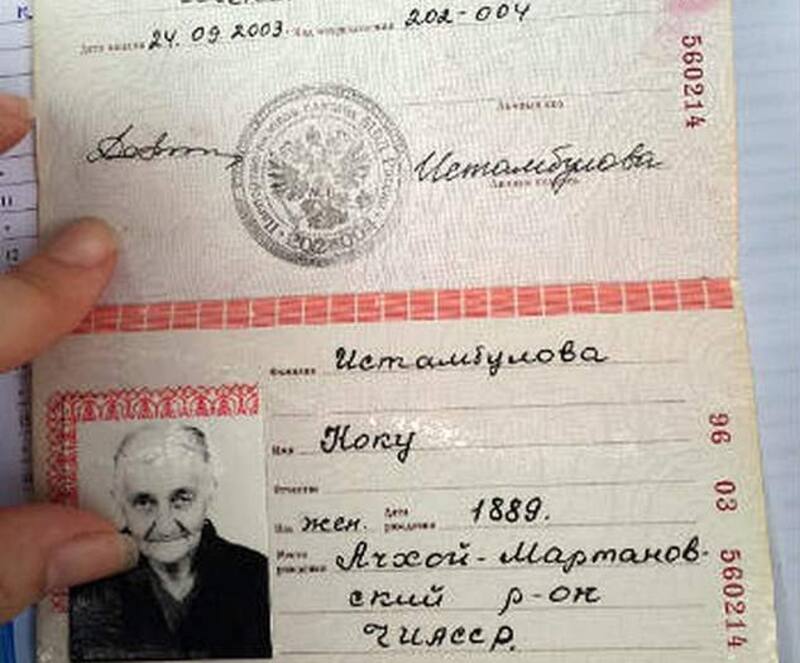 Дата выдачи 24.09.2003. Код подразделения 202-004
560214
Личный код
Истамбулова
Личная подпись
202-004
Фамилия Истамбулова
Имя Коку
Отчество
Пол жен. Дата рождения 1889.
Место рождения Ачхой-Мартанов-
ский р-он
ЧИАССР.
96 03 560214